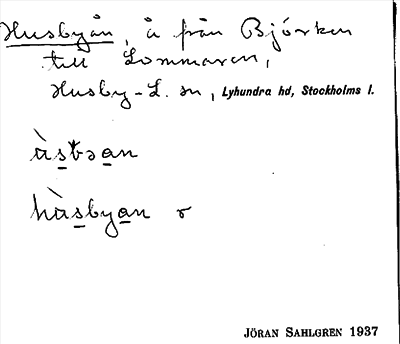 Husbyån, å från Björken
till Lommaren,
Husby-L. sn, Lyhundra hd, Stockholms l.
hàsbyan r
JÖRAN SAHLGREN 1937